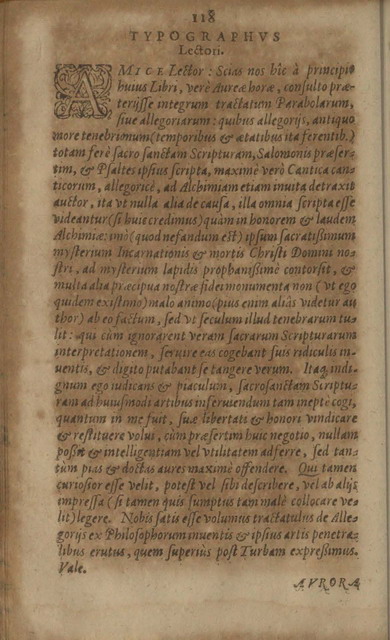 118
TYPOGRAPHVS
Lectori.
AMICE Lector: Scias nos hîc à principio
huius Libri, verè Aureæ horæ, consulto præ-
terijsse integrum tractatum Parabolarum,
siue allegoriarum: quibus allegorijs, antiquo
more tenebrionum (temporibus & ætatibus ita ferentib.)
totam ferè sacro sanctam Scripturam, Salomonis præser-
tim, & Psaltes ipsius scripta, maximè verò Cantica can-
ticorum, allegoricè, ad Alchimiam etiam inuita detraxit
auctor, ita vt nulla alia de causa, illa omnia scripta esse
videantur (si huic credimus) quàm in honorem & laudem
Alchimiæ: imò (quod nefandum est) ipsum sacratissimum
mysterium Incarnationis & mortis Christi Domini no-
stri, ad mysterium lapidis prophanissimè contorsit, &
multa alia præcipua nostræ fidei monumenta non (vt ego
quidem existimo) malo animo (pius enim aliàs videtur au
thor) ab eo factum, sed vt seculum illud tenebrarum tu-
lit: qui cùm ignorarent veram sacrarum Scripturarum
interpretationem, seruire eas cogebant suis ridiculis in-
uentis, & digito putabant se tangere verum. Itaq; indi-
gnum ego iudicans & piaculum, sacrosanctam Scriptu-
ram ad huiusmodi artibus inseruiendum tam ineptè cogi,
quantum in me fuit, suæ libertati & honori vindicare
& restituere volui, cùm præsertim huic negotio, nullam
possit & intelligentiam vel vtilitatem adferre, sed tan-
tùm pias & doctas aures maximè offendere. Qui tamen
curiosior esse velit, potest vel sibi describere, vel ab alijs
impressa (si tamen quis sumptus tam malè collocare ve-
lit) legere. Nobis satis esse volumus tractatulus de Alle-
gorijs ex Philosophorum inuentis & ipsius artis penetra-
libus erutus, quem superiùs post Turbam expressimus.
Vale.
AVRORA